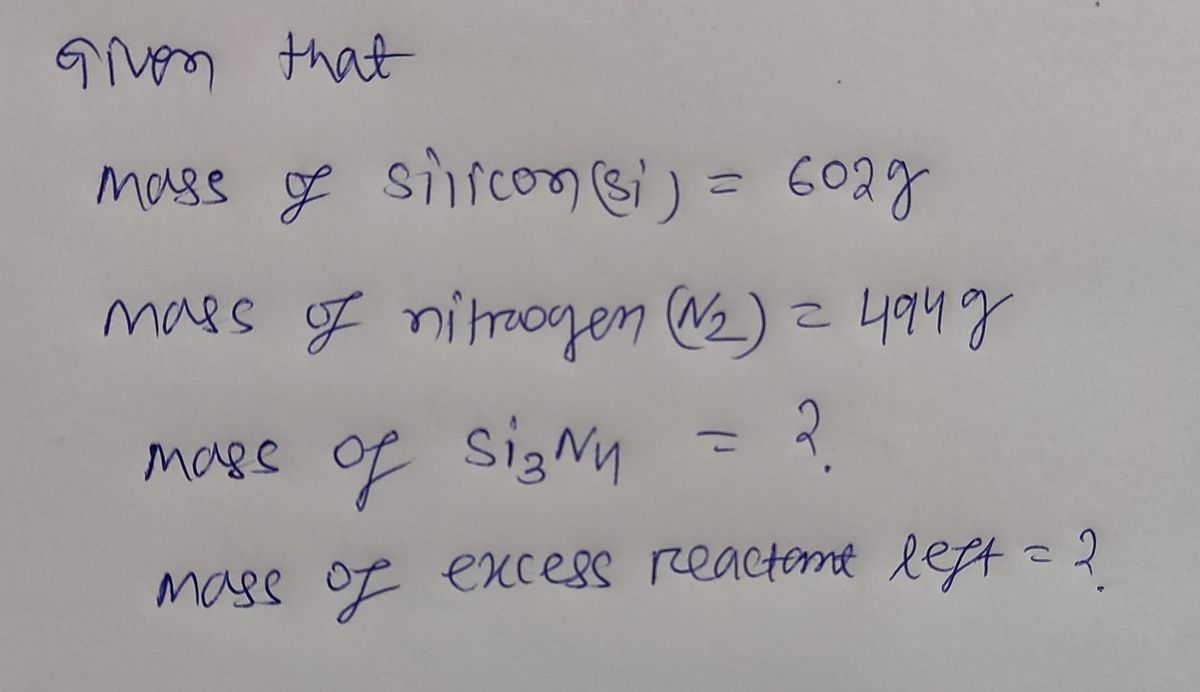 Given that
mass of silicon(si) = 602g
mass of nitrogen (N2) = 494g
mass of Si3N4 = ?
mass of excess reactant left = ?